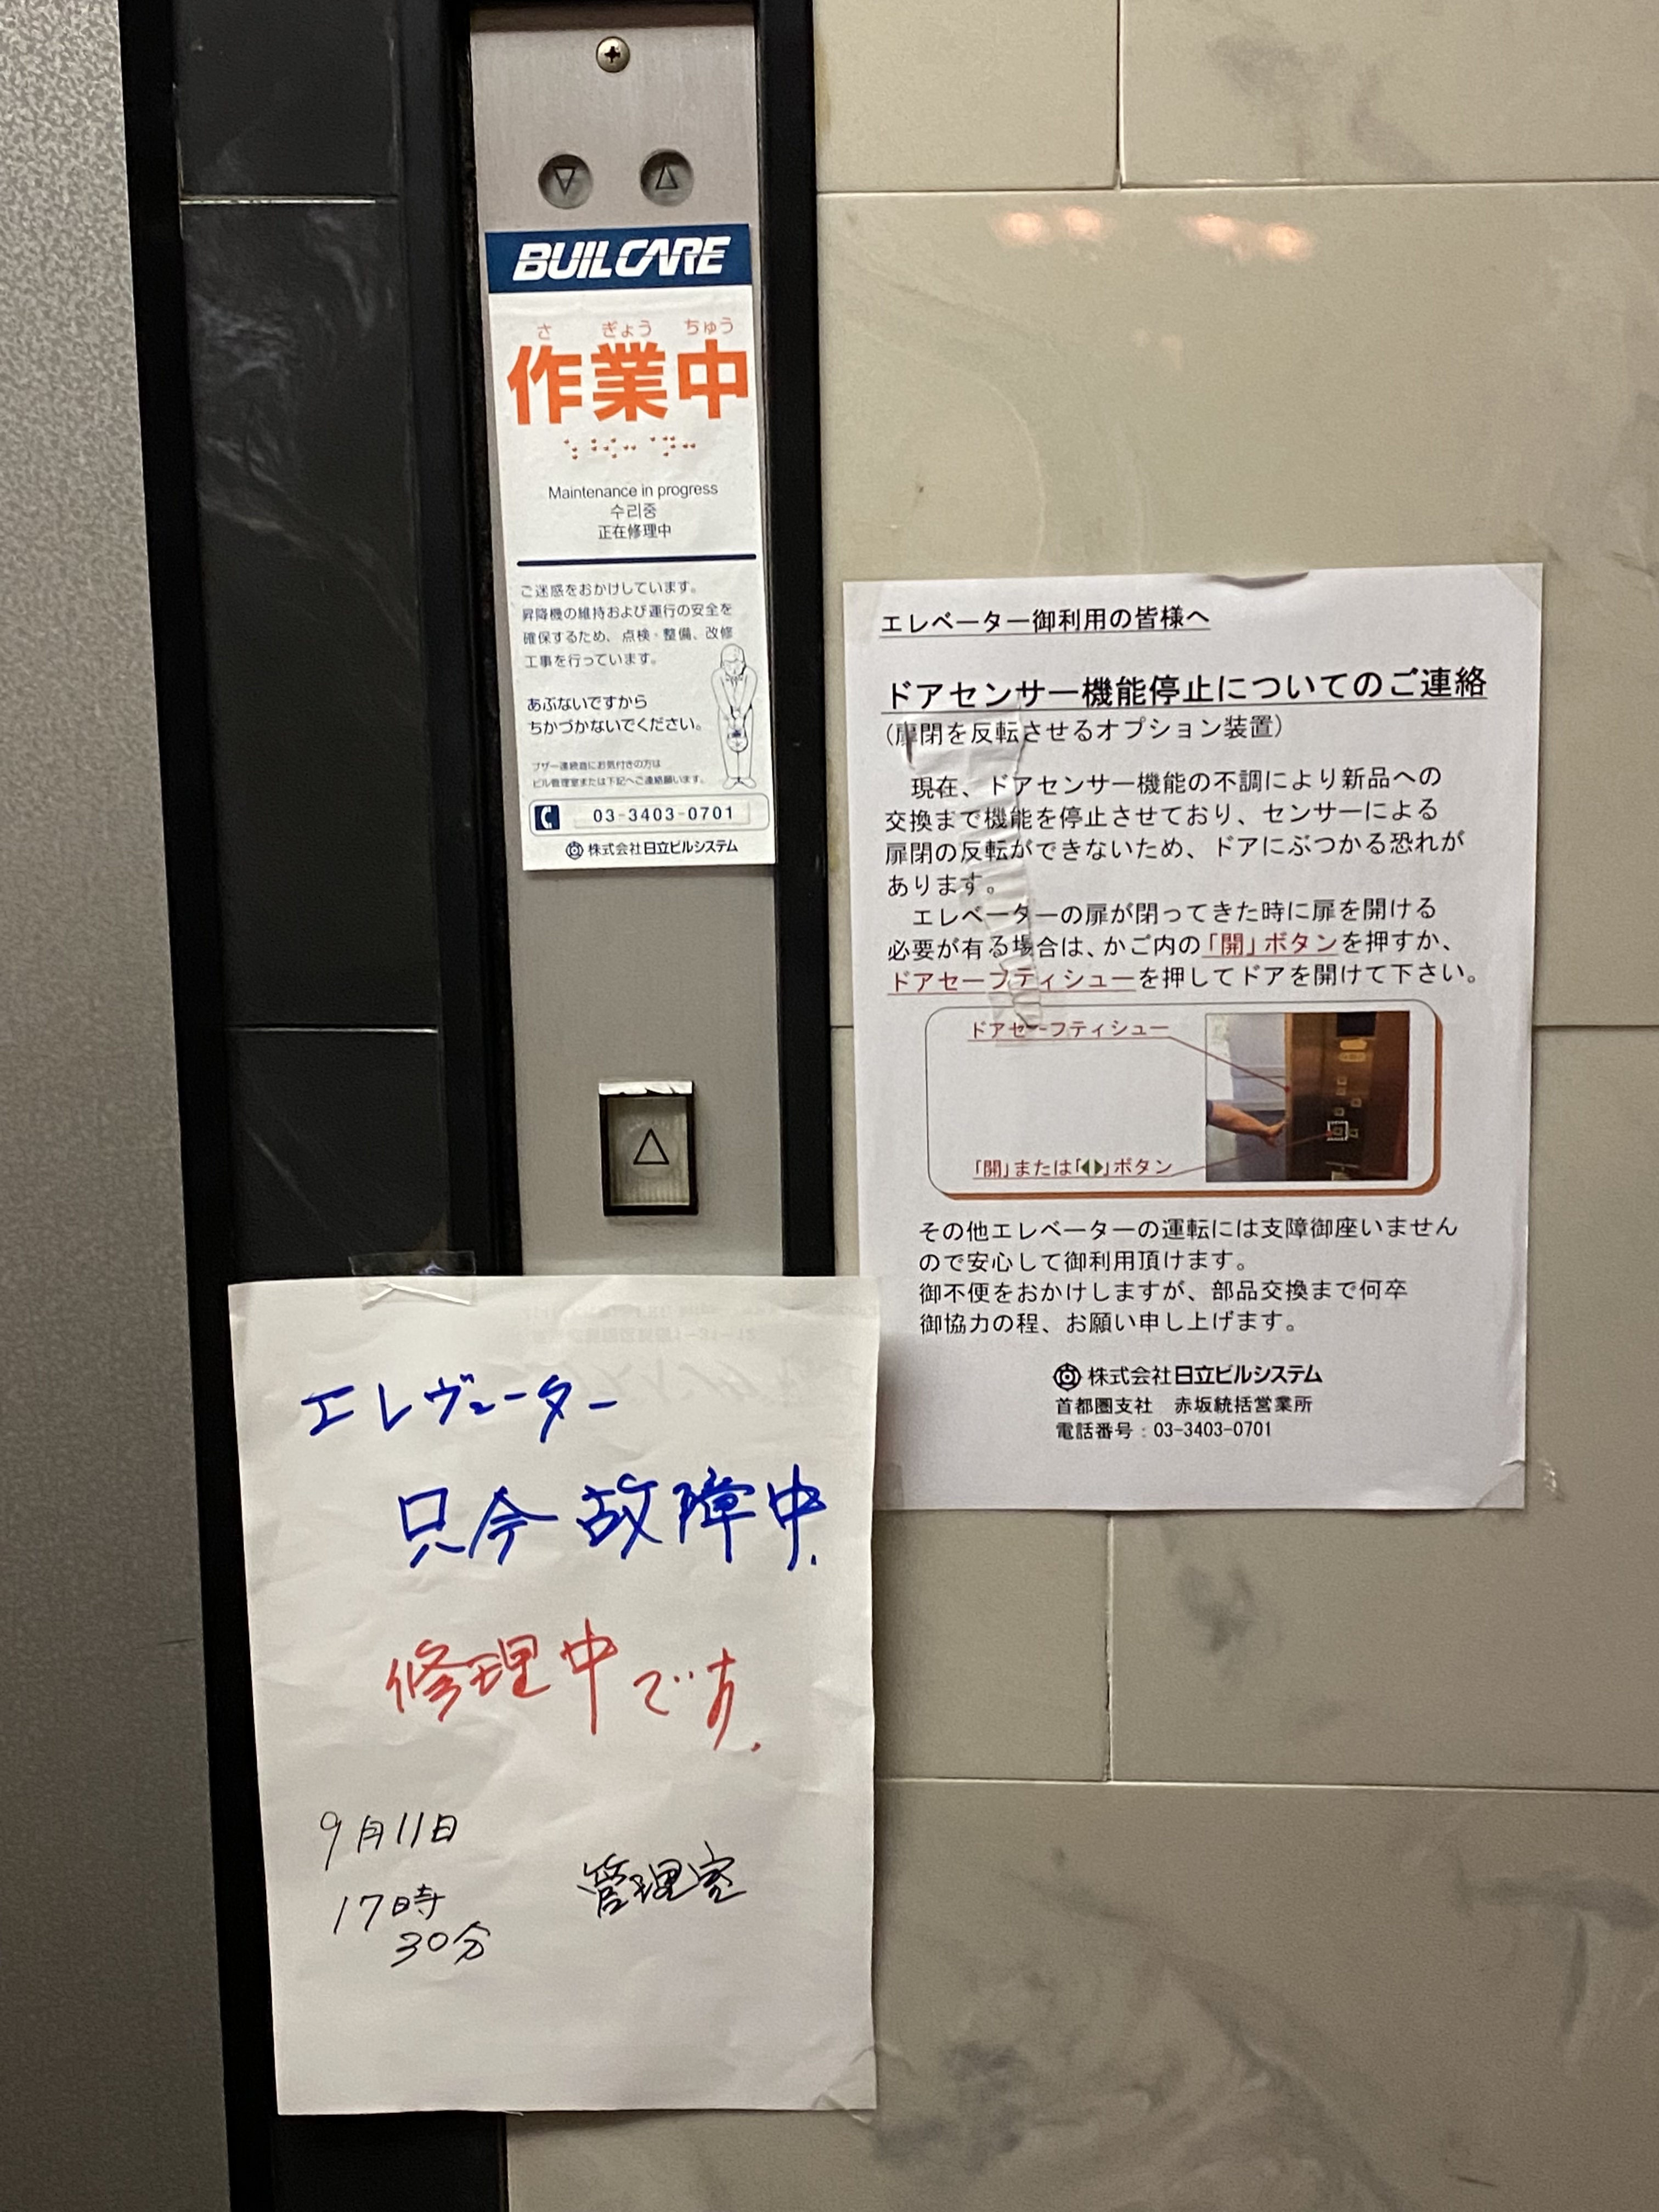 BUILCARE
さ ぎょう ちゅう
作業中
Maintenance in progress
수리중
正在修理中
ご迷惑をおかけしています。
昇降機の維持および運行の安全を
確保するため、点検・整備、改修
工事を行っています。
あぶないですから
ちかづかないでください。
ブザー連続音にお気付きの方は
ビル管理室または下記へご連絡願います。
03-3403-0701
株式会社日立ビルシステム
エレベーター御利用の皆様へ
ドアセンサー機能停止についてのご連絡
(扉閉を反転させるオプション装置)
現在、ドアセンサー機能の不調により新品への
交換まで機能を停止させており、センサーによる
扉閉の反転ができないため、ドアにぶつかる恐れが
あります。
エレベーターの扉が閉ってきた時に扉を開ける
必要が有る場合は、かご内の「開」ボタンを押すか、
ドアセーフティシューを押してドアを開けて下さい。
ドアセーフティシュー
「開」または「◀▶」ボタン
その他エレベーターの運転には支障御座いません
ので安心して御利用頂けます。
御不便をおかけしますが、部品交換まで何卒
御協力の程、お願い申し上げます。
株式会社日立ビルシステム
首都圏支社 赤坂統括営業所
電話番号：03-3403-0701
エレヴェーター
只今故障中.
修理中です.
9月11日
17時
30分
管理室